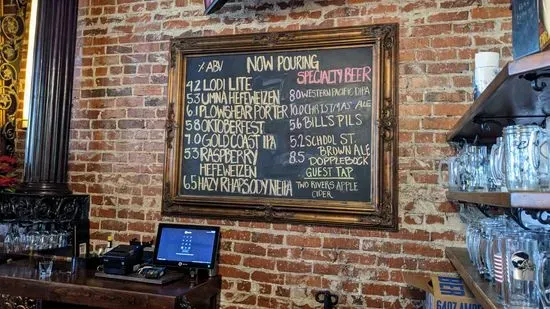 % ABV NOW POURING
4.2 LODI LITE
5.3 UMNA HEFEWEIZEN
6.1 PLOWSHEAR PORTER
5.8 OKTOBERFEST
7.0 GOLD COAST IPA
5.3 RASPBERRY
HEFEWEIZEN
6.5 HAZY RHAPSODY NEIPA
SPECIALTY BEER
8.0 WESTERN PACIFIC DIPA
10.0 CHRISTMAS ALE
5.6 BILL'S PILS
5.2 SCHOOL ST.
BROWN ALE
8.5 DOPPLEBOCK
GUEST TAP
TWO RIVERS APPLE
CIDER